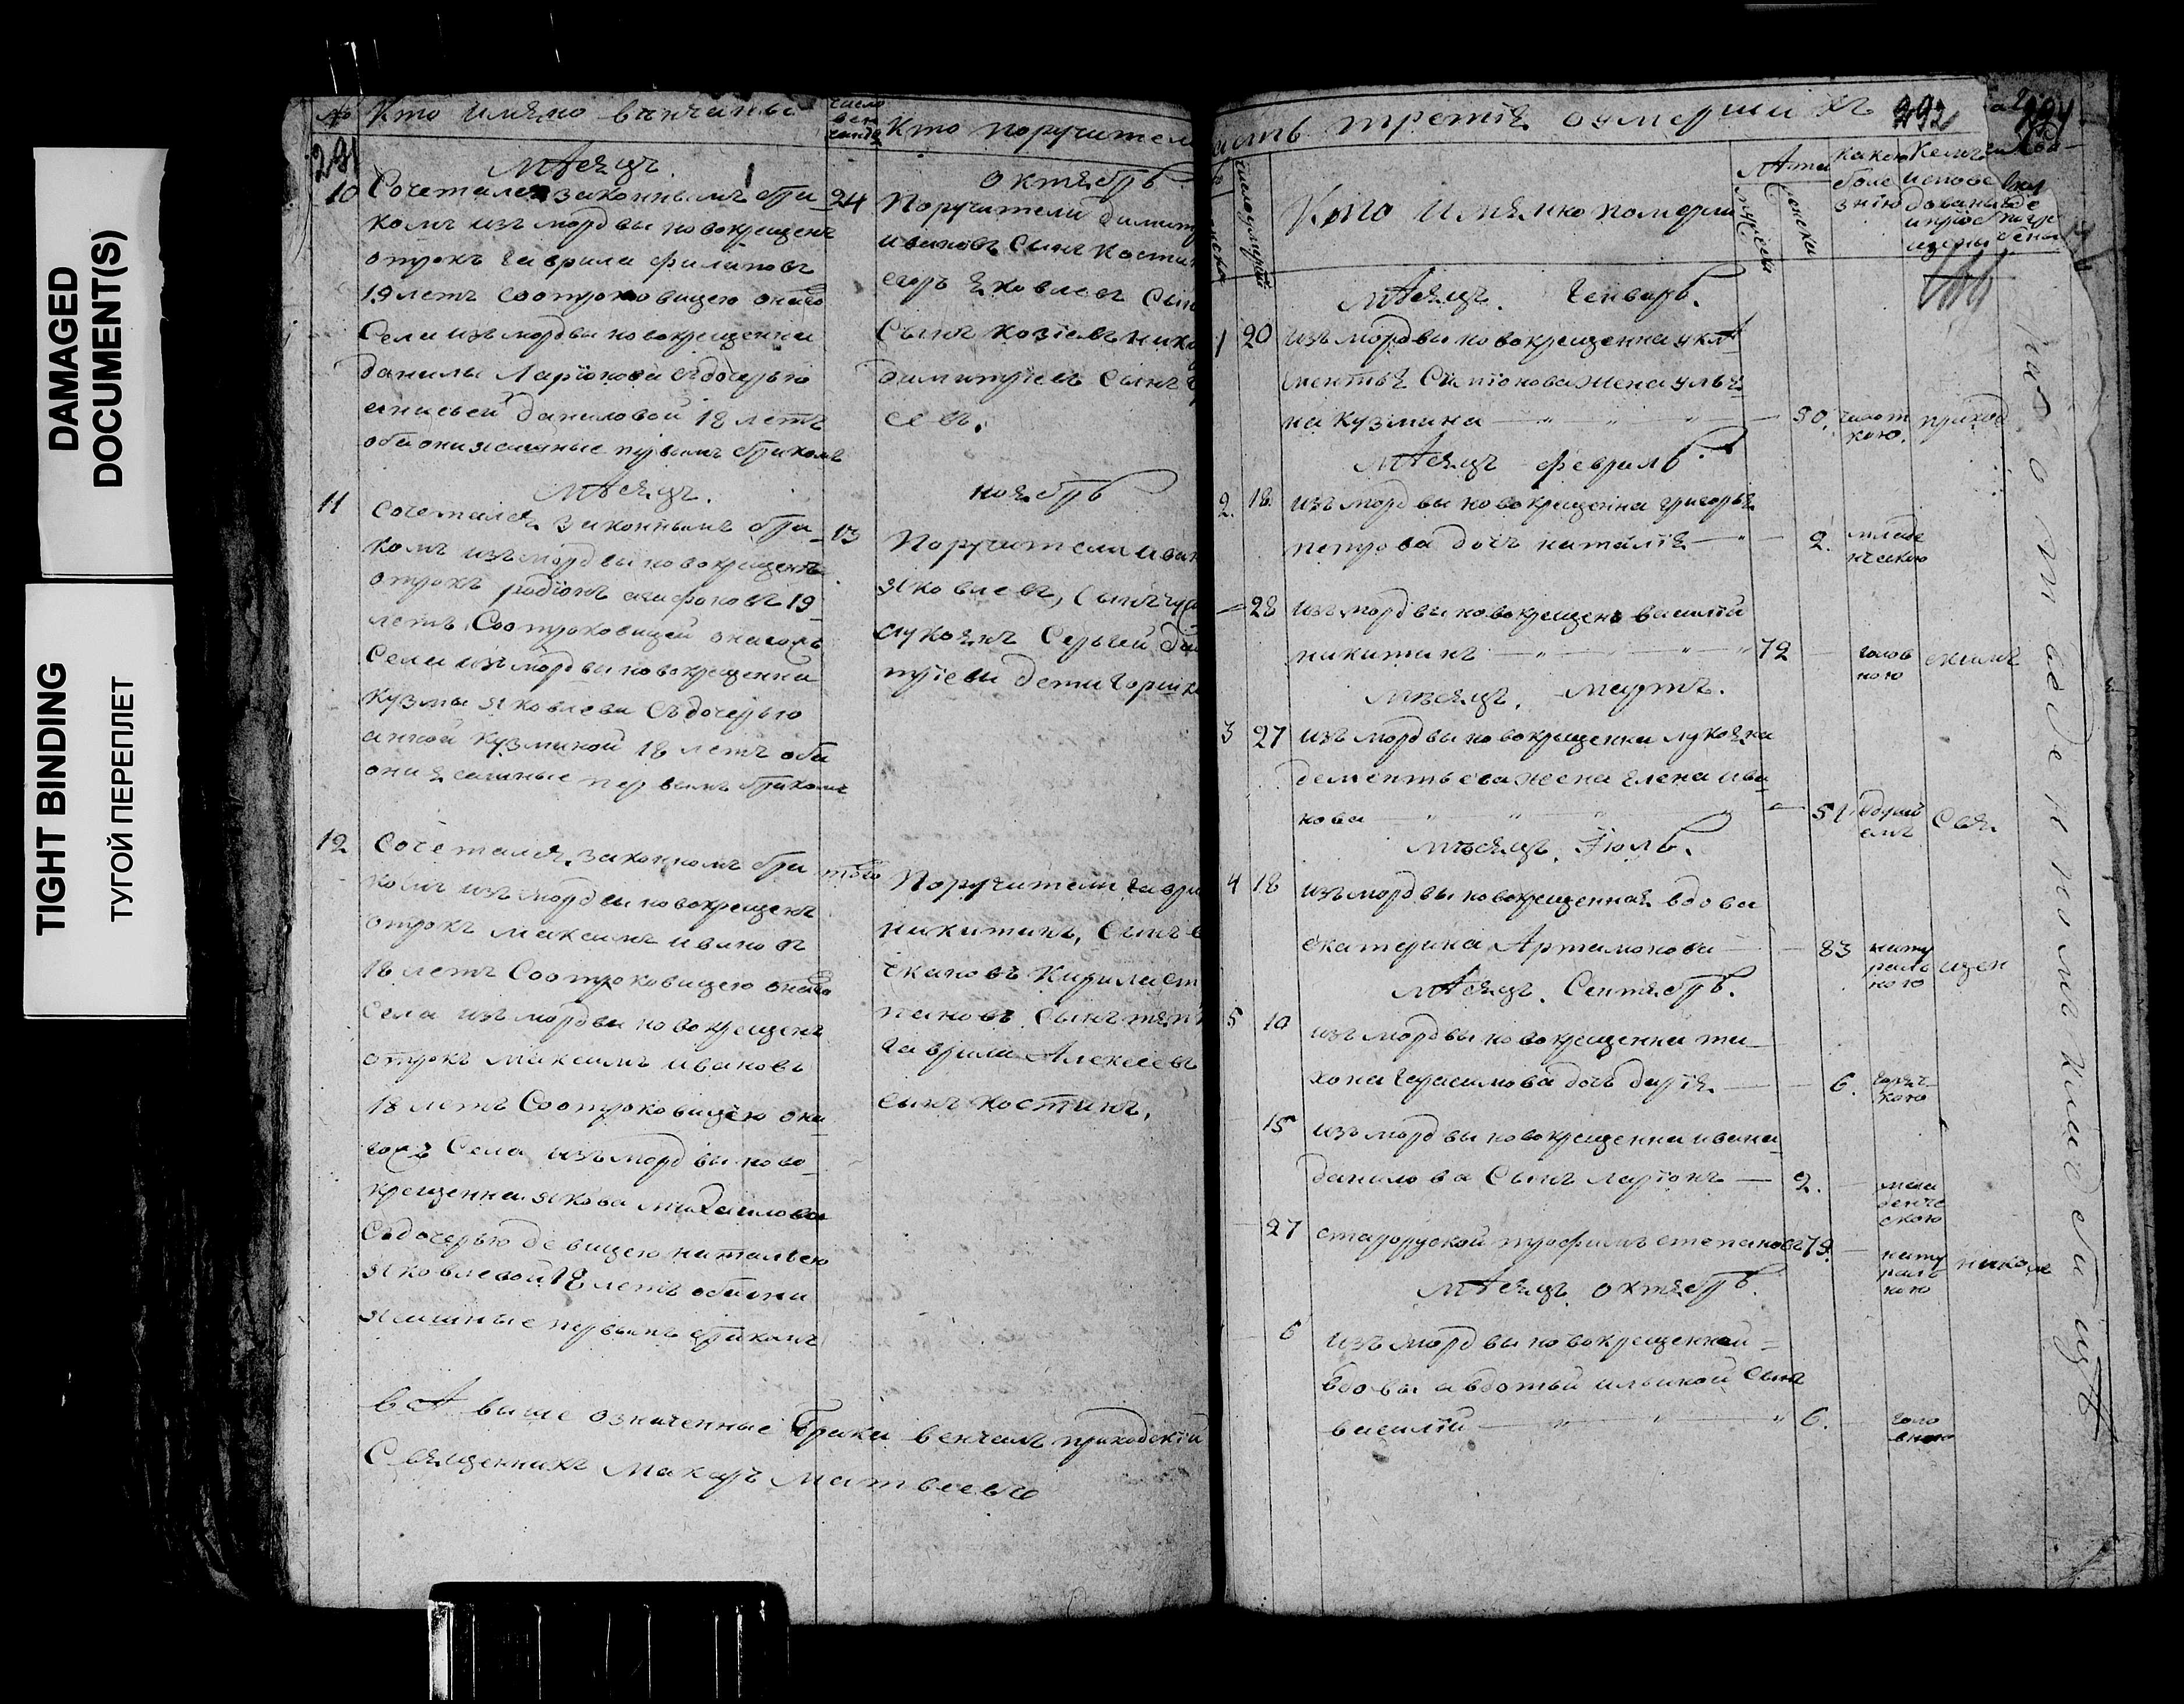 DAMAGED
DOCUMENT(S)
TIGHT BINDING
ТУГОЙ ПЕРЕПЛЕТ
№ Кто имянно венчаны
число венчанія
Кто поручители
291
Месяцъ
октябрь
10 Сочетался законнымъ бра-
24
комъ изъ мордвы новокрещенъ
отрокъ гаврила филатовъ
19 летъ соотроковицею онаго
Села изъ мордвы новокрещенна
данилы Ларіонова съ дочерью
анисьей даниловой 18 летъ
оба они ясашные первымъ бракомъ
Поручители димит
ивановъ Сынъ Кости
егоръ яковлевъ Сын
Сынъ козіевъ ник
димитріевъ Сынъ
севъ.
Месяцъ.
ноябрь
11 сочетался законнымъ бра-
13
комъ изъ мордвы новокрещенъ
отрокъ родіонъ агафоновъ 19
летъ, Соотроковицей онагожъ
Села изъ мордвы новокрещенна
Кузмы яковлева съ дочерью
анной Кузминой 18 летъ оба
они ясашные первымъ бракомъ
Поручители иван
яковлевъ, Сынъ
лукоянъ Сергей
тріевы дети Горшк
12 Сочетался законномъ бра
того
комъ изъ мордвы новокрещенъ
отрокъ максимъ ивановъ
18 летъ Соотроковицею онаго
Села изъ мордвы новокрещенъ
отрокъ максимъ ивановъ
18 летъ Соотроковицею она
гожъ Села изъ мордвы ново-
крещенна якова михаилова
Съ дочерью девицею натальею
яковлевой 18 летъ оба они
ясашные первымъ бракомъ
Поручители гаври
никитинъ, Сынъ
чкановъ Кирила ст
пановъ Сынъ
гаврила Алексеевъ
сынъ костинъ,
Все выше означенные браки венчалъ приходскій
Священникъ Макаръ Матвеевъ
асть третія оумершихъ
292
294
число умертв
Кто имянно померли
Лета
мужеска
женска
какою болезнію
Кемъ исповеданы и пріобщены
Месяцъ. Генварь.
1 20 изъ мордвы новокрещенна укле
ментья Симіонова жена улья
на Кузмина 30. чахоткою. приход
Месяцъ февраль
2. 18. изъ мордвы новокрещенна григорья
петрова дочь наталія 2. младенческою
28 изъ мордвы новокрещенъ василій
никитинъ 72 головною скимъ
Месяцъ, мартъ.
3 27 изъ мордвы новокрещенна лукояна
дементьева жена елена ива
нова 51. свя
Месяцъ. Іюль.
4 18 изъ мордвы новокрещенная вдова
екатерина Артамонова 83 натуральною щен
Месяцъ. Сентябрь.
5 10 изъ мордвы новокрещенна ти-
хона герасимова дочь дарія 6. горячкою
15 изъ мордвы новокрещенна ивана
данилова Сынъ ларіонъ 2. младенческою
27 старорусской трофимъ степановъ 79 натуральною никомъ
Месяцъ октябрь.
6 изъ мордвы новокрещенной
вдовы авдотьи ильиной Сынъ
василій 6. головною
на отведенномъ кладбище